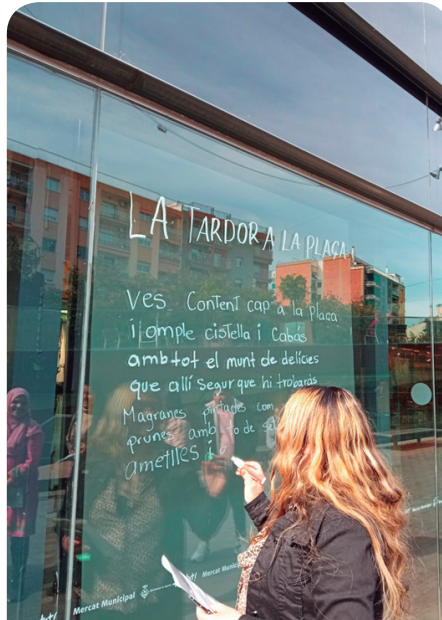 LA TARDOR A LA PLAÇA
Ves content cap a la plaça
i omple cistella i cabàs
amb tot el munt de delícies
que allí segur que hi trobaràs
Magranes pintades com
prunes amb o de
ametlles i
Mercat Municipal
Mercat Municipal